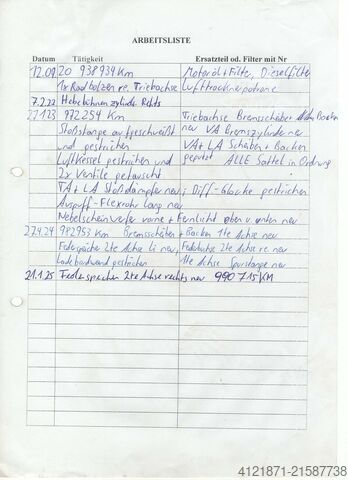 ARBEITSLISTE
Datum Tätigkeit Ersatzteil od. Filter mit Nr
12.09.20 938934 Km Motoröl + Filter, Dieselfilter
1x Radbolzen re. Triebachse Lufttrocknerpatrone
7.2.22 Hebebühnenzylinder Rechts
972254 Km Triebachse Bremsscheiben
Stoßstange aufgeschweißt neu VA Bremszylinder neu
und gestrichen VA + LA Scheiben + Backen
Luftkessel gestrichen und ALLE Sättel in Ordnung
2x Ventile getauscht
TA + LA Stoßdämpfer neu; Diff-Glocke gestrichen
Auspuff-Flexrohr lang neu
Nebelscheinwerfer vorne + Fernlicht oben u. unten neu
22.4.24 982953 Km Bremsscheiben + Backen 1te Achse neu
Federspeicher 2te Achse li neu, 2te Achse re neu
Ladebordwand gestrichen 1te Achse Spurstange neu
21.1.25 Federspeicher 2te Achse rechts neu 990715 KM
4121871-21587738